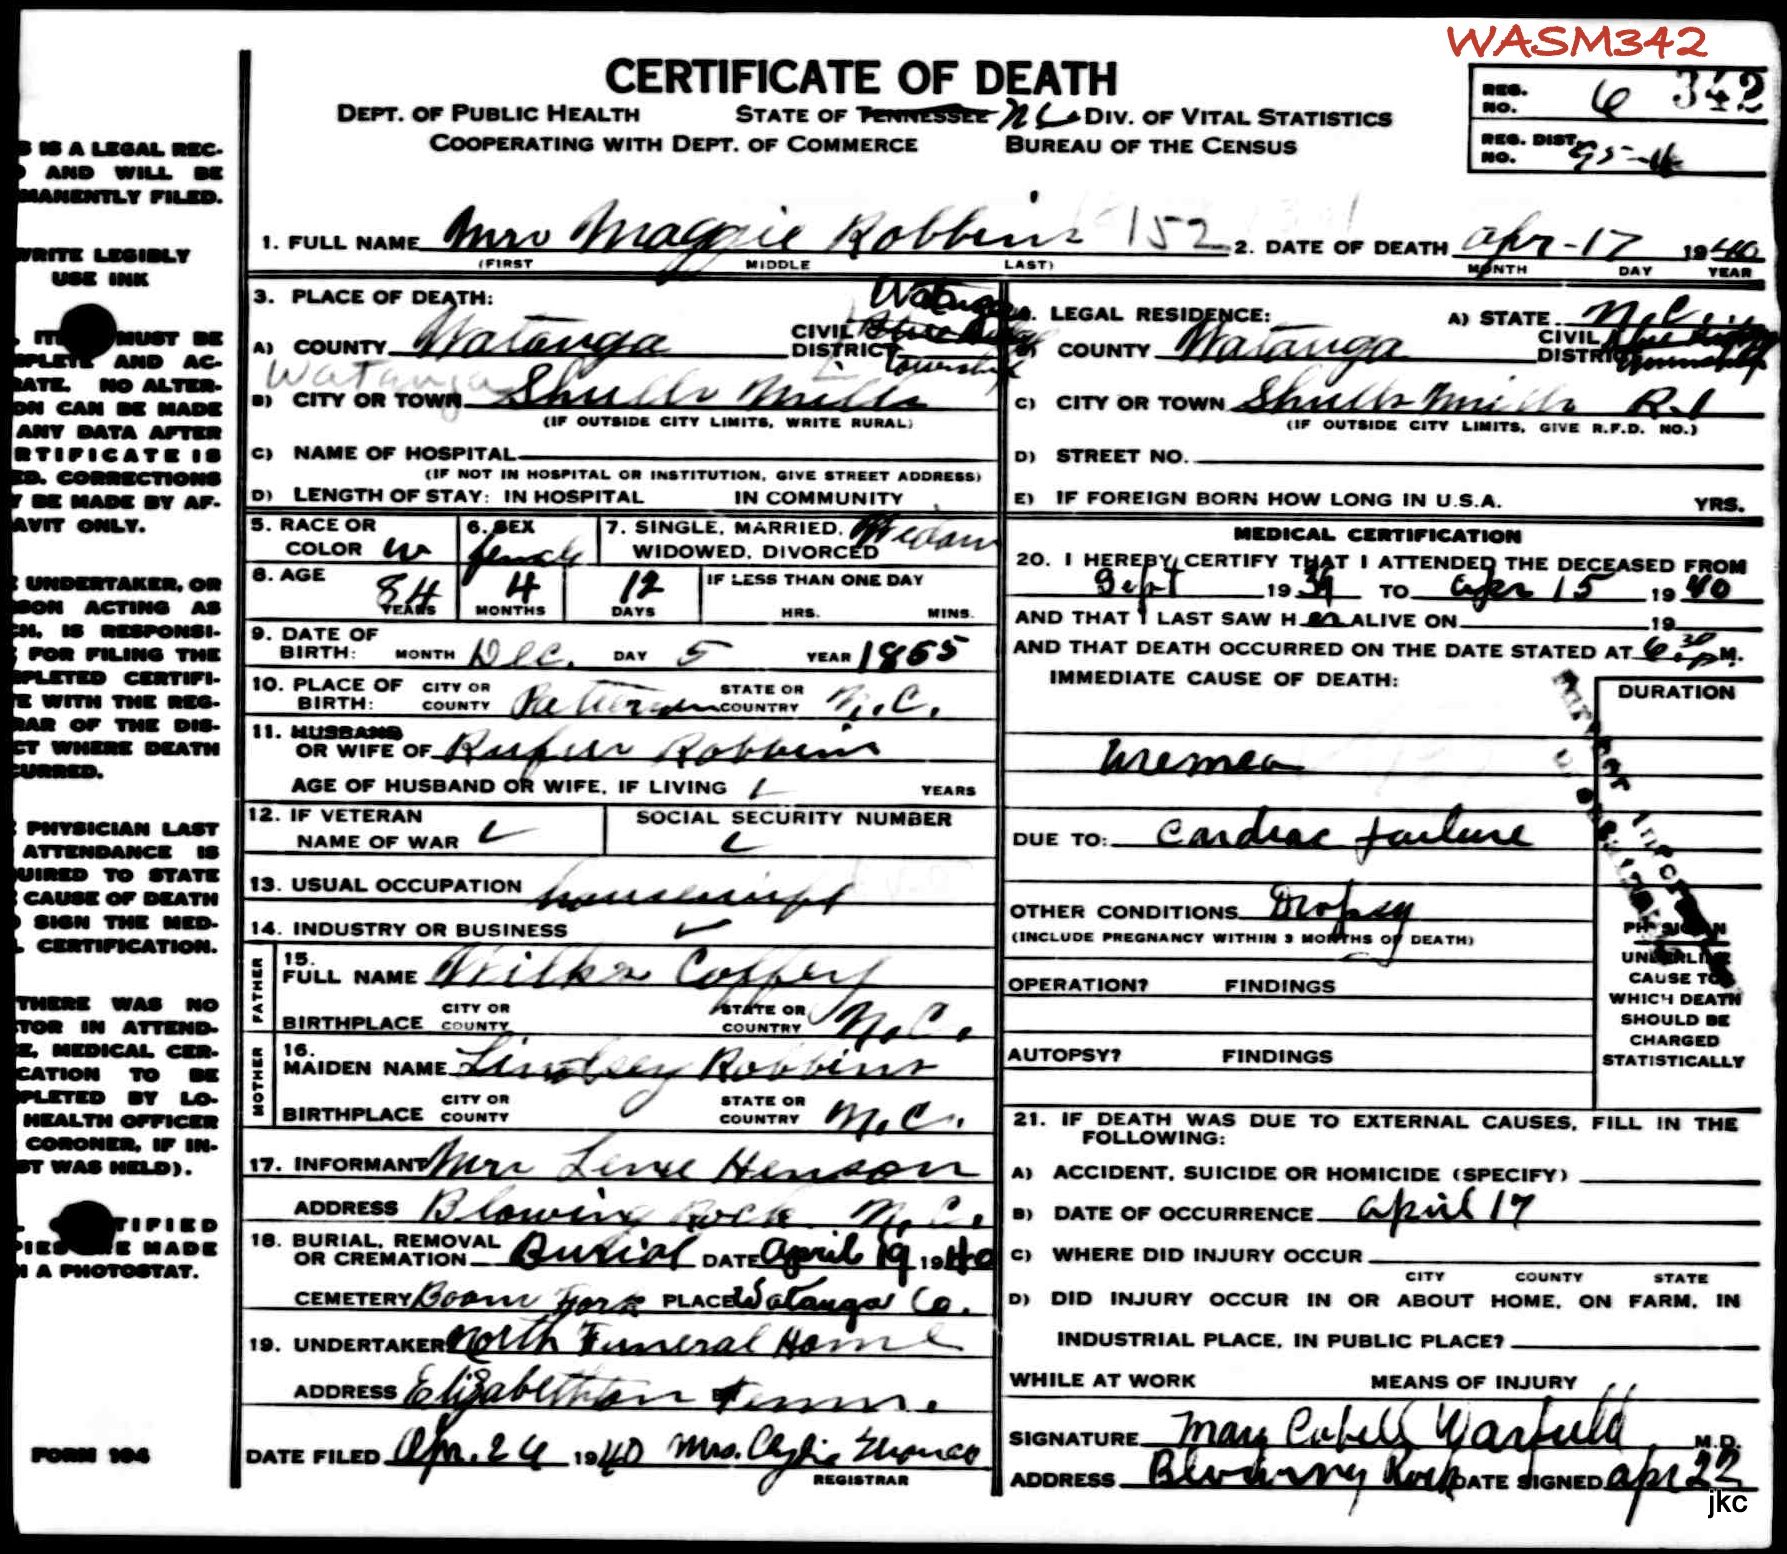 WASM342
CERTIFICATE OF DEATH
DEPT. OF PUBLIC HEALTH STATE OF TENNESSEE N.C. DIV. OF VITAL STATISTICS
COOPERATING WITH DEPT. OF COMMERCE BUREAU OF THE CENSUS
REG. NO. 6 342
REG. DIST. NO. 95-
S IS A LEGAL REC-
AND WILL BE
MANENTLY FILED.
WRITE LEGIBLY
USE INK
MUST BE
AND AC-
RATE. NO ALTER-
ON CAN BE MADE
ANY DATA AFTER
RTIFICATE IS
ED. CORRECTIONS
Y BE MADE BY AF-
AVIT ONLY.
UNDERTAKER, OR
SON ACTING AS
CH, IS RESPONSI-
FOR FILING THE
MPLETED CERTIFI-
E WITH THE REG-
RAR OF THE DIS-
CT WHERE DEATH
CURRED.
PHYSICIAN LAST
ATTENDANCE IS
QUIRED TO STATE
CAUSE OF DEATH
SIGN THE MED-
L CERTIFICATION.
THERE WAS NO
TOR IN ATTEND-
E, MEDICAL CER-
CATION TO BE
MPLETED BY LO-
HEALTH OFFICER
CORONER, IF IN-
ST WAS HELD).
TIFIED
MADE
A PHOTOSTAT.
FORM 104
1. FULL NAME Mrs Maggie Robbins 152 2. DATE OF DEATH Apr-17 1940
(FIRST MIDDLE LAST) MONTH DAY YEAR
3. PLACE OF DEATH: Watauga
A) COUNTY Watauga CIVIL DISTRICT Blue Ridge Township
Watauga
B) CITY OR TOWN Shulls Mills
(IF OUTSIDE CITY LIMITS, WRITE RURAL)
C) NAME OF HOSPITAL
(IF NOT IN HOSPITAL OR INSTITUTION, GIVE STREET ADDRESS)
D) LENGTH OF STAY: IN HOSPITAL IN COMMUNITY
4. LEGAL RESIDENCE: A) STATE N.C.
B) COUNTY Watauga CIVIL DISTRICT Blue Ridge Township
C) CITY OR TOWN Shulls Mills R.1
(IF OUTSIDE CITY LIMITS, GIVE R.F.D. NO.)
D) STREET NO.
E) IF FOREIGN BORN HOW LONG IN U.S.A. YRS.
5. RACE OR COLOR W 6. SEX female 7. SINGLE, MARRIED, WIDOWED, DIVORCED Widow
8. AGE 84 YEARS 4 MONTHS 12 DAYS IF LESS THAN ONE DAY HRS. MINS.
9. DATE OF BIRTH: MONTH Dec. DAY 5 YEAR 1855
10. PLACE OF BIRTH: CITY OR COUNTY Patterson STATE OR COUNTRY N.C.
11. HUSBAND OR WIFE OF Rufus Robbins
AGE OF HUSBAND OR WIFE, IF LIVING YEARS
12. IF VETERAN NAME OF WAR SOCIAL SECURITY NUMBER
13. USUAL OCCUPATION housewife
14. INDUSTRY OR BUSINESS
FATHER
15. FULL NAME Wilks Coffey
BIRTHPLACE CITY OR COUNTY STATE OR COUNTRY N.C.
MOTHER
16. MAIDEN NAME Lindsey Robbins
BIRTHPLACE CITY OR COUNTY STATE OR COUNTRY N.C.
17. INFORMANT Mrs Henson
ADDRESS Blowing Rock N.C.
18. BURIAL, REMOVAL OR CREMATION Burial DATE April 19 1940
CEMETERY Boon Fork PLACE Watauga Co.
19. UNDERTAKER North Funeral Home
ADDRESS Elizabethton Tenn.
DATE FILED Apr. 26 1940 Mrs.
REGISTRAR
MEDICAL CERTIFICATION
20. I HEREBY CERTIFY THAT I ATTENDED THE DECEASED FROM
Sept 1939 TO Apr 15 1940
AND THAT I LAST SAW HER ALIVE ON 19
AND THAT DEATH OCCURRED ON THE DATE STATED AT 6:30 P M.
IMMEDIATE CAUSE OF DEATH: DURATION
Uremea
DUE TO: Cardiac failure
OTHER CONDITIONS Dropsy
(INCLUDE PREGNANCY WITHIN 3 MONTHS OF DEATH)
OPERATION? FINDINGS
AUTOPSY? FINDINGS
PHYSICIAN
UNDERLINE
CAUSE TO
WHICH DEATH
SHOULD BE
CHARGED
STATISTICALLY
21. IF DEATH WAS DUE TO EXTERNAL CAUSES, FILL IN THE
FOLLOWING:
A) ACCIDENT, SUICIDE OR HOMICIDE (SPECIFY)
B) DATE OF OCCURRENCE April 17
C) WHERE DID INJURY OCCUR
CITY COUNTY STATE
D) DID INJURY OCCUR IN OR ABOUT HOME, ON FARM, IN
INDUSTRIAL PLACE, IN PUBLIC PLACE?
WHILE AT WORK MEANS OF INJURY
SIGNATURE Mary Cabell Warfield M.D.
ADDRESS Blowing Rock DATE SIGNED Apr 22
jkc